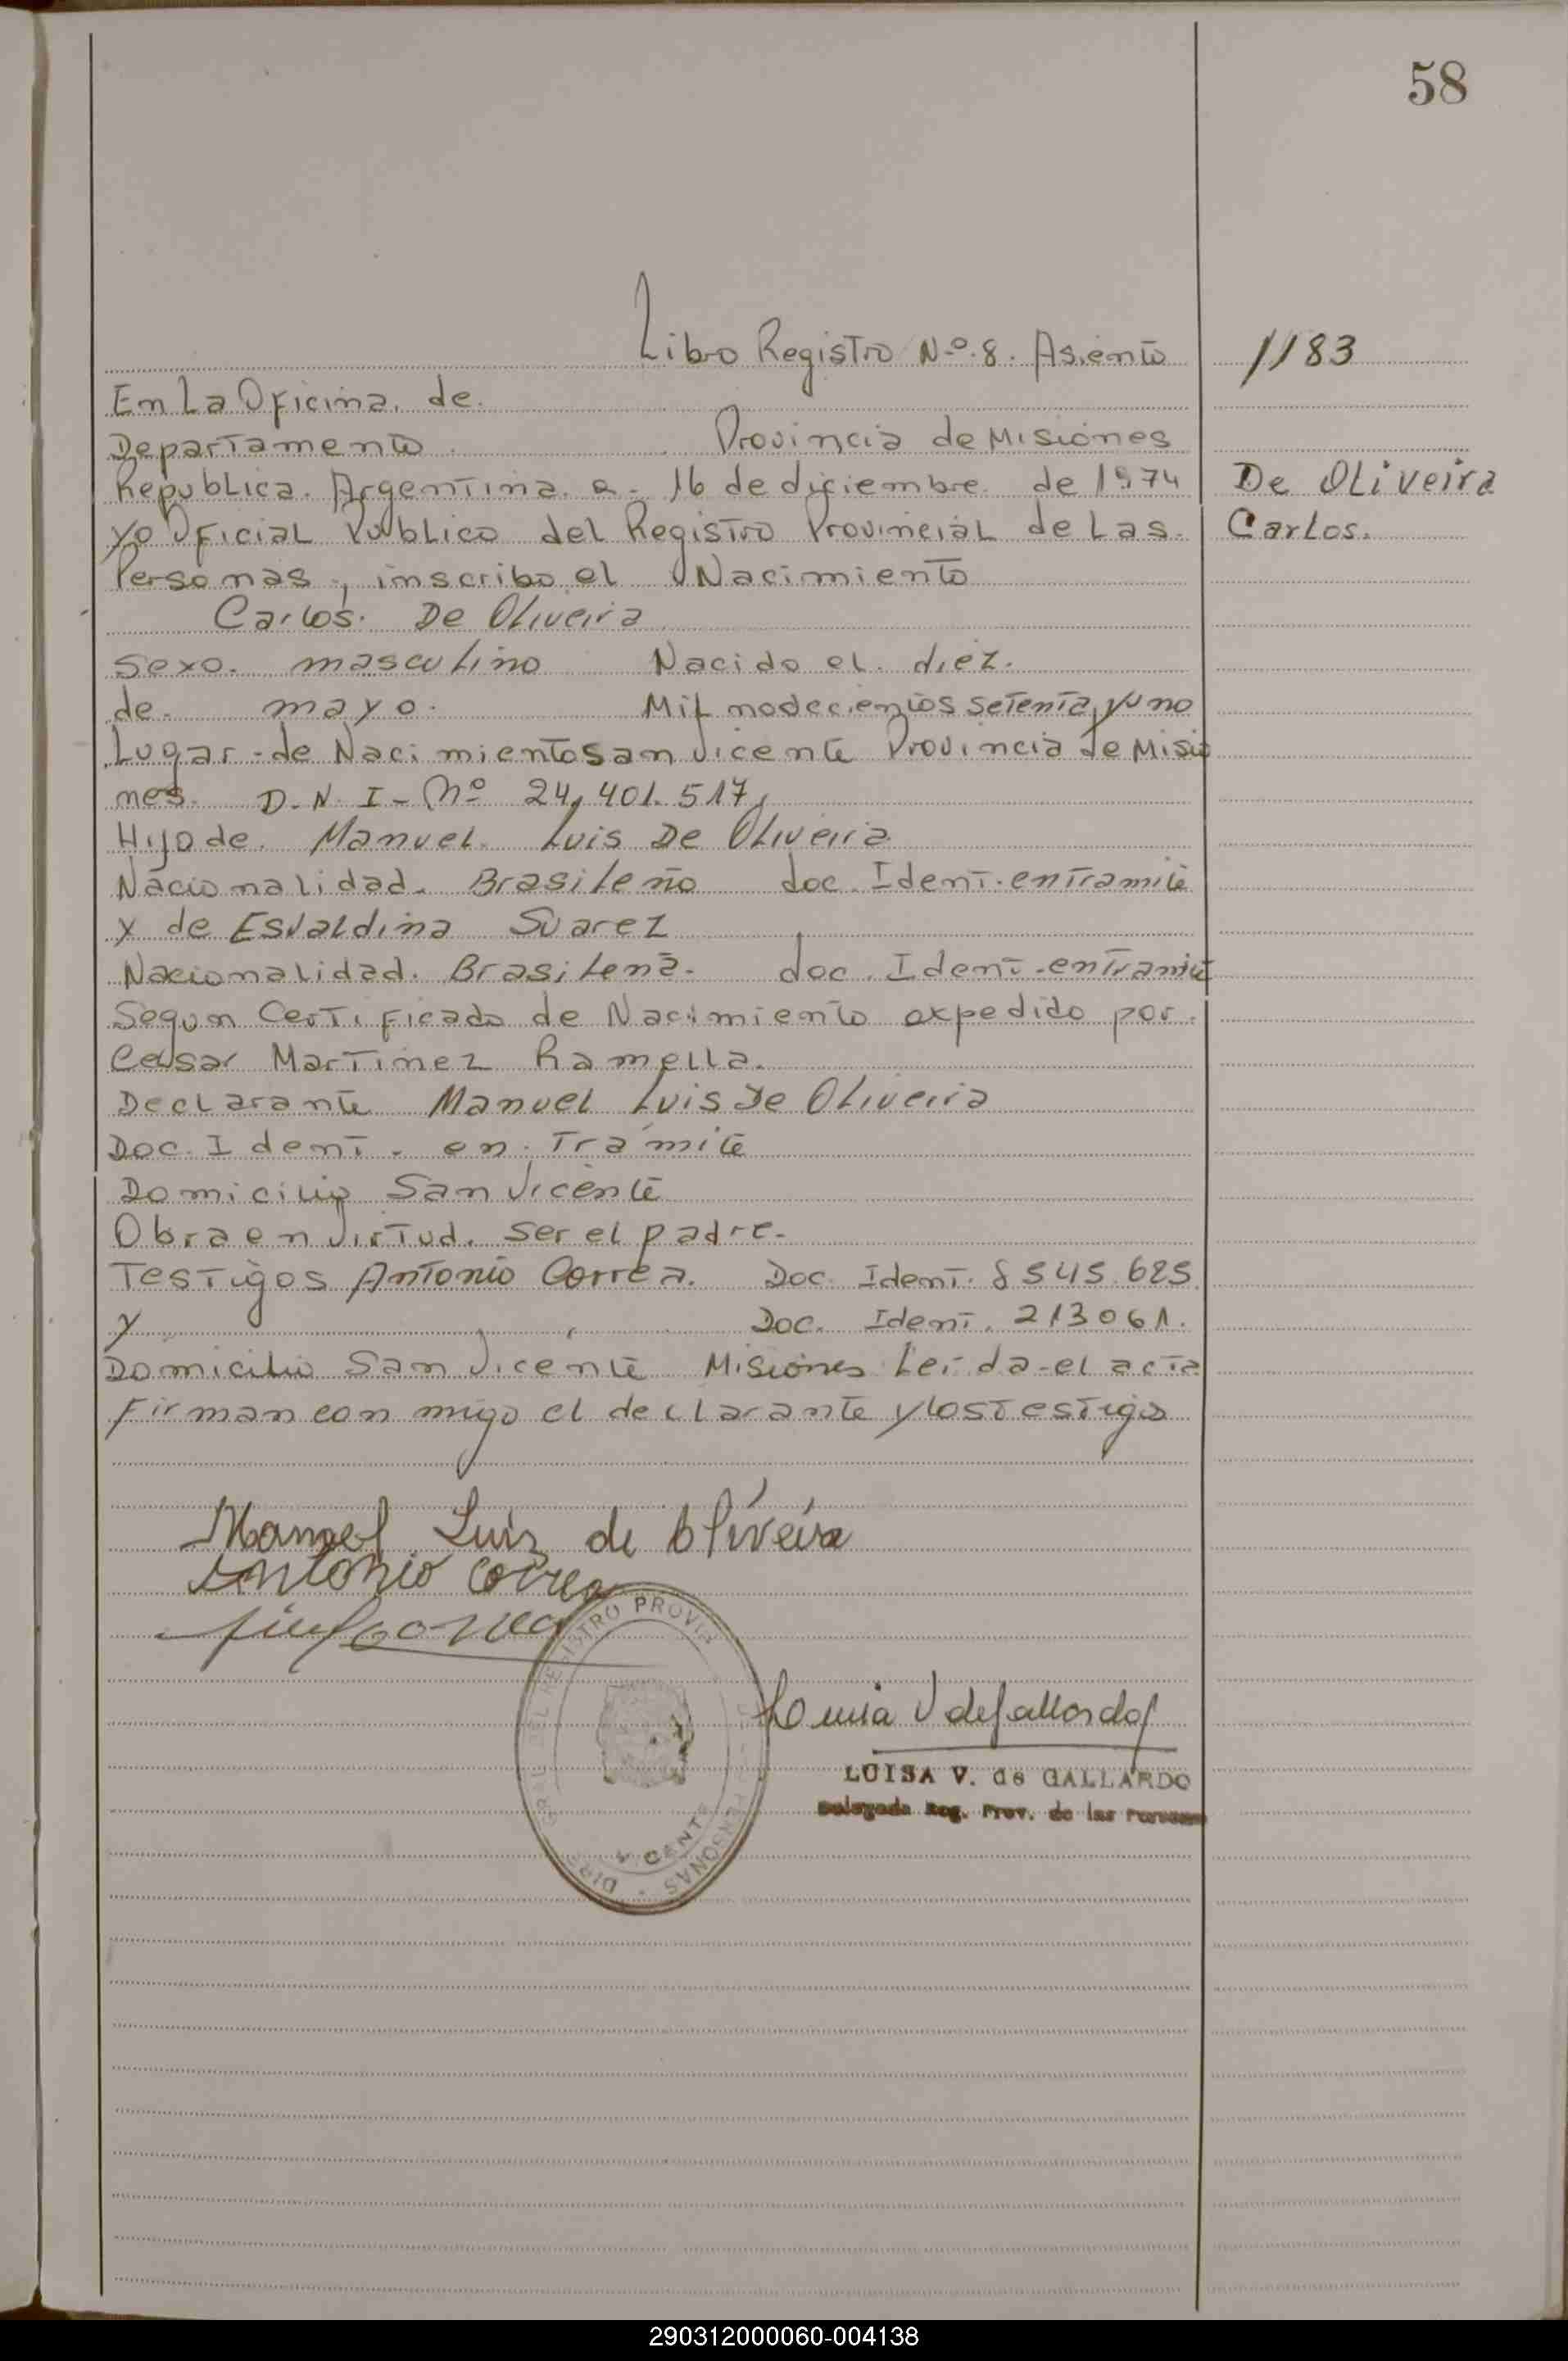 58
Libro Registro N.º 8. Asiento 1183
En La Oficina. de.
Departamento Provincia de Misiones
Republica. Argentina. a. 16 de diciembre. de 1974
De Oliveira
Yo Oficial Publico del Registro Provincial de Las.
Carlos.
Personas, inscribo el Nacimiento
Carlos. De Oliveira
Sexo. masculino Nacido el. diez.
de. mayo. Mil nodecientos setenta yuno
Lugar-de Nacimiento San Vicente Provincia de Misio
nes. D.N.I-Nº 24,401.517,
Hijo de. Manuel. Luis De Oliveira
Nacionalidad. Brasileño doc. Ident. entramite
y de Esvaldina Suarez
Nacionalidad. Brasilena. doc. Ident-entramite
Segun Certificado de Nacimiento expedido por.
Cesar Martinez Ramella.
Declarante Manuel Luis De Oliveira
Doc. Ident. en. Tramite
Domicilio San Vicente
Obra en Virtud. ser el padre.
Testigos Antonio Correa. Doc. Ident. 8545.625
y Doc. Ident. 213061.
Domicilio San Vicente Misiones Leida-el acta
Firman con migo el declarante y los Testigos
Manoel Luiz de Oliveira
Antonio Correa
REGISTRO PROVI
PERSONAS
DIRE
CENTE
LUISA V. de GALLARDO
Delegada Reg. Prov. de las Personas
290312000060-004138